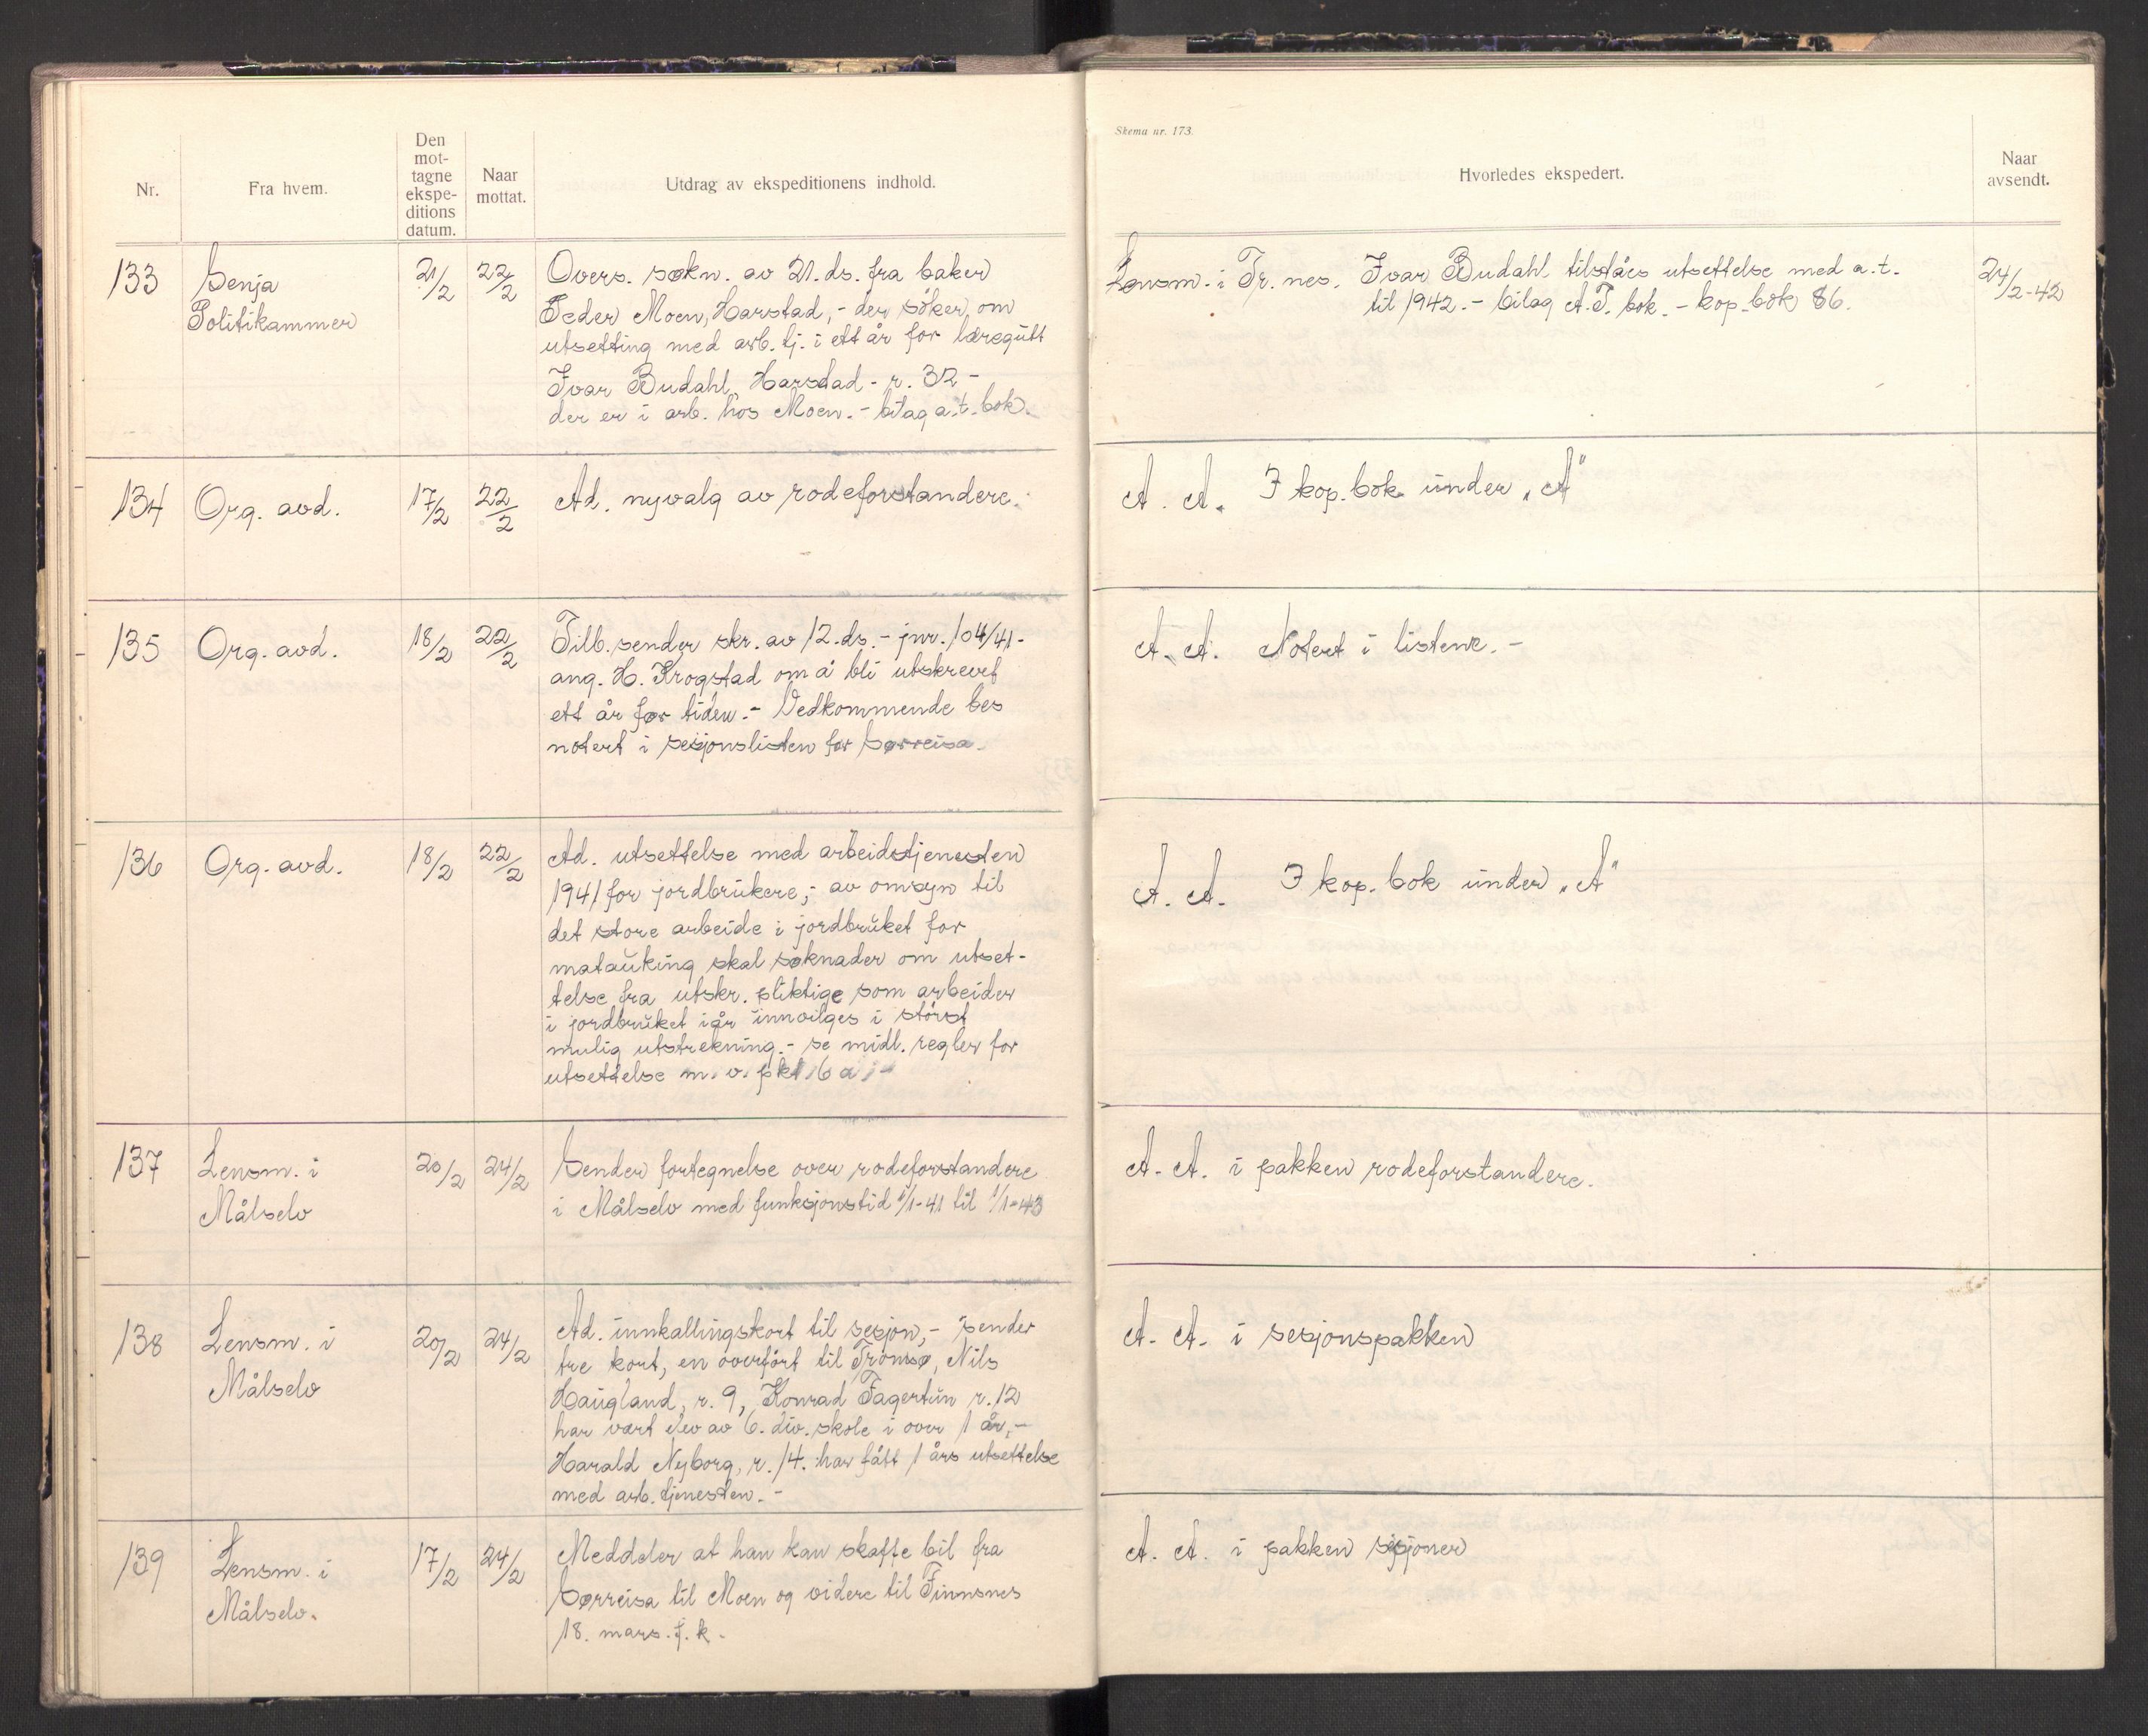 Nr.
Fra hvem.
Den
mot-
tagne
ekspe-
ditions
datum.
Naar
mottat.
Utdrag av ekspeditionens indhold.
Skema nr. 173.
Hvorledes ekspedert.
Naar
avsendt.
133
Senja
Politikammer
21/2
22/2
Overs. søkn. av 21. ds. fra baker
Peder Moen, Harstad, - der söker om
utsetting med arb. tj. i ett år for læregutt
Ivar Budahl, Harstad - r. 32 -
der er i arb. hos Moen. - bilag a.t. bok.
Lensm. i Tr. nes. Ivar Budahl tilståes utsettelse med a.t.
til 1942. - bilag A.T. bok. - kop. bok 86.
24/2-42
134
Org. avd.
17/2
22/2
Ad. nyvalg av rodeforstandere.
A. A. I kop. bok under „A"
135
Org. avd.
18/2
22/2
Tilb. sender skr. av 12. ds. - jnr. 104/41 -
ang. H. Krogstad om å bli utskrevet
ett år før tiden. - Vedkommende bes
notert i sesjonslisten for Sørreisa.
A. A. Notert i listene. -
136
Org. avd.
18/2
22/2
Ad. utsettelse med arbeidstjenesten
1941 for jordbrukere, - av omsyn til
det store arbeide i jordbruket for
matauking skal søknader om utset-
telse fra utskr. pliktige som arbeider
i jordbruket iår innvilges i størst
mulig utstrekning. - se midl. regler for
utsettelse m. v. pkt. 6 a, -
A. A. I kop. bok under „A"
137
Lensm. i
Målselv
20/2
24/2
Sender fortegnelse over rodeforstandere
i Målselv med funksjonstid 1/1-41 til 1/1-43
A. A. i pakken rodeforstandere.
138
Lensm. i
Målselv
20/2
24/2
Ad. innkallingskort til sesjon, - sender
tre kort, en overført til Tromsø, Nils
Haugland, r. 9, Konrad Fagertun r. 12
har vært elev av 6. div. skole i over 1 år, -
Harald Nyborg, r. 14. har fått 1 års utsettelse
med arb. tjenesten. -
A. A. i sesjonspakken
139
Lensm. i
Målselv.
17/2
24/2
Meddeler at han kan skaffe bil fra
Sørreisa til Moen og videre til Finnsnes
18. mars. f. k.
A. A. i pakken sesjoner